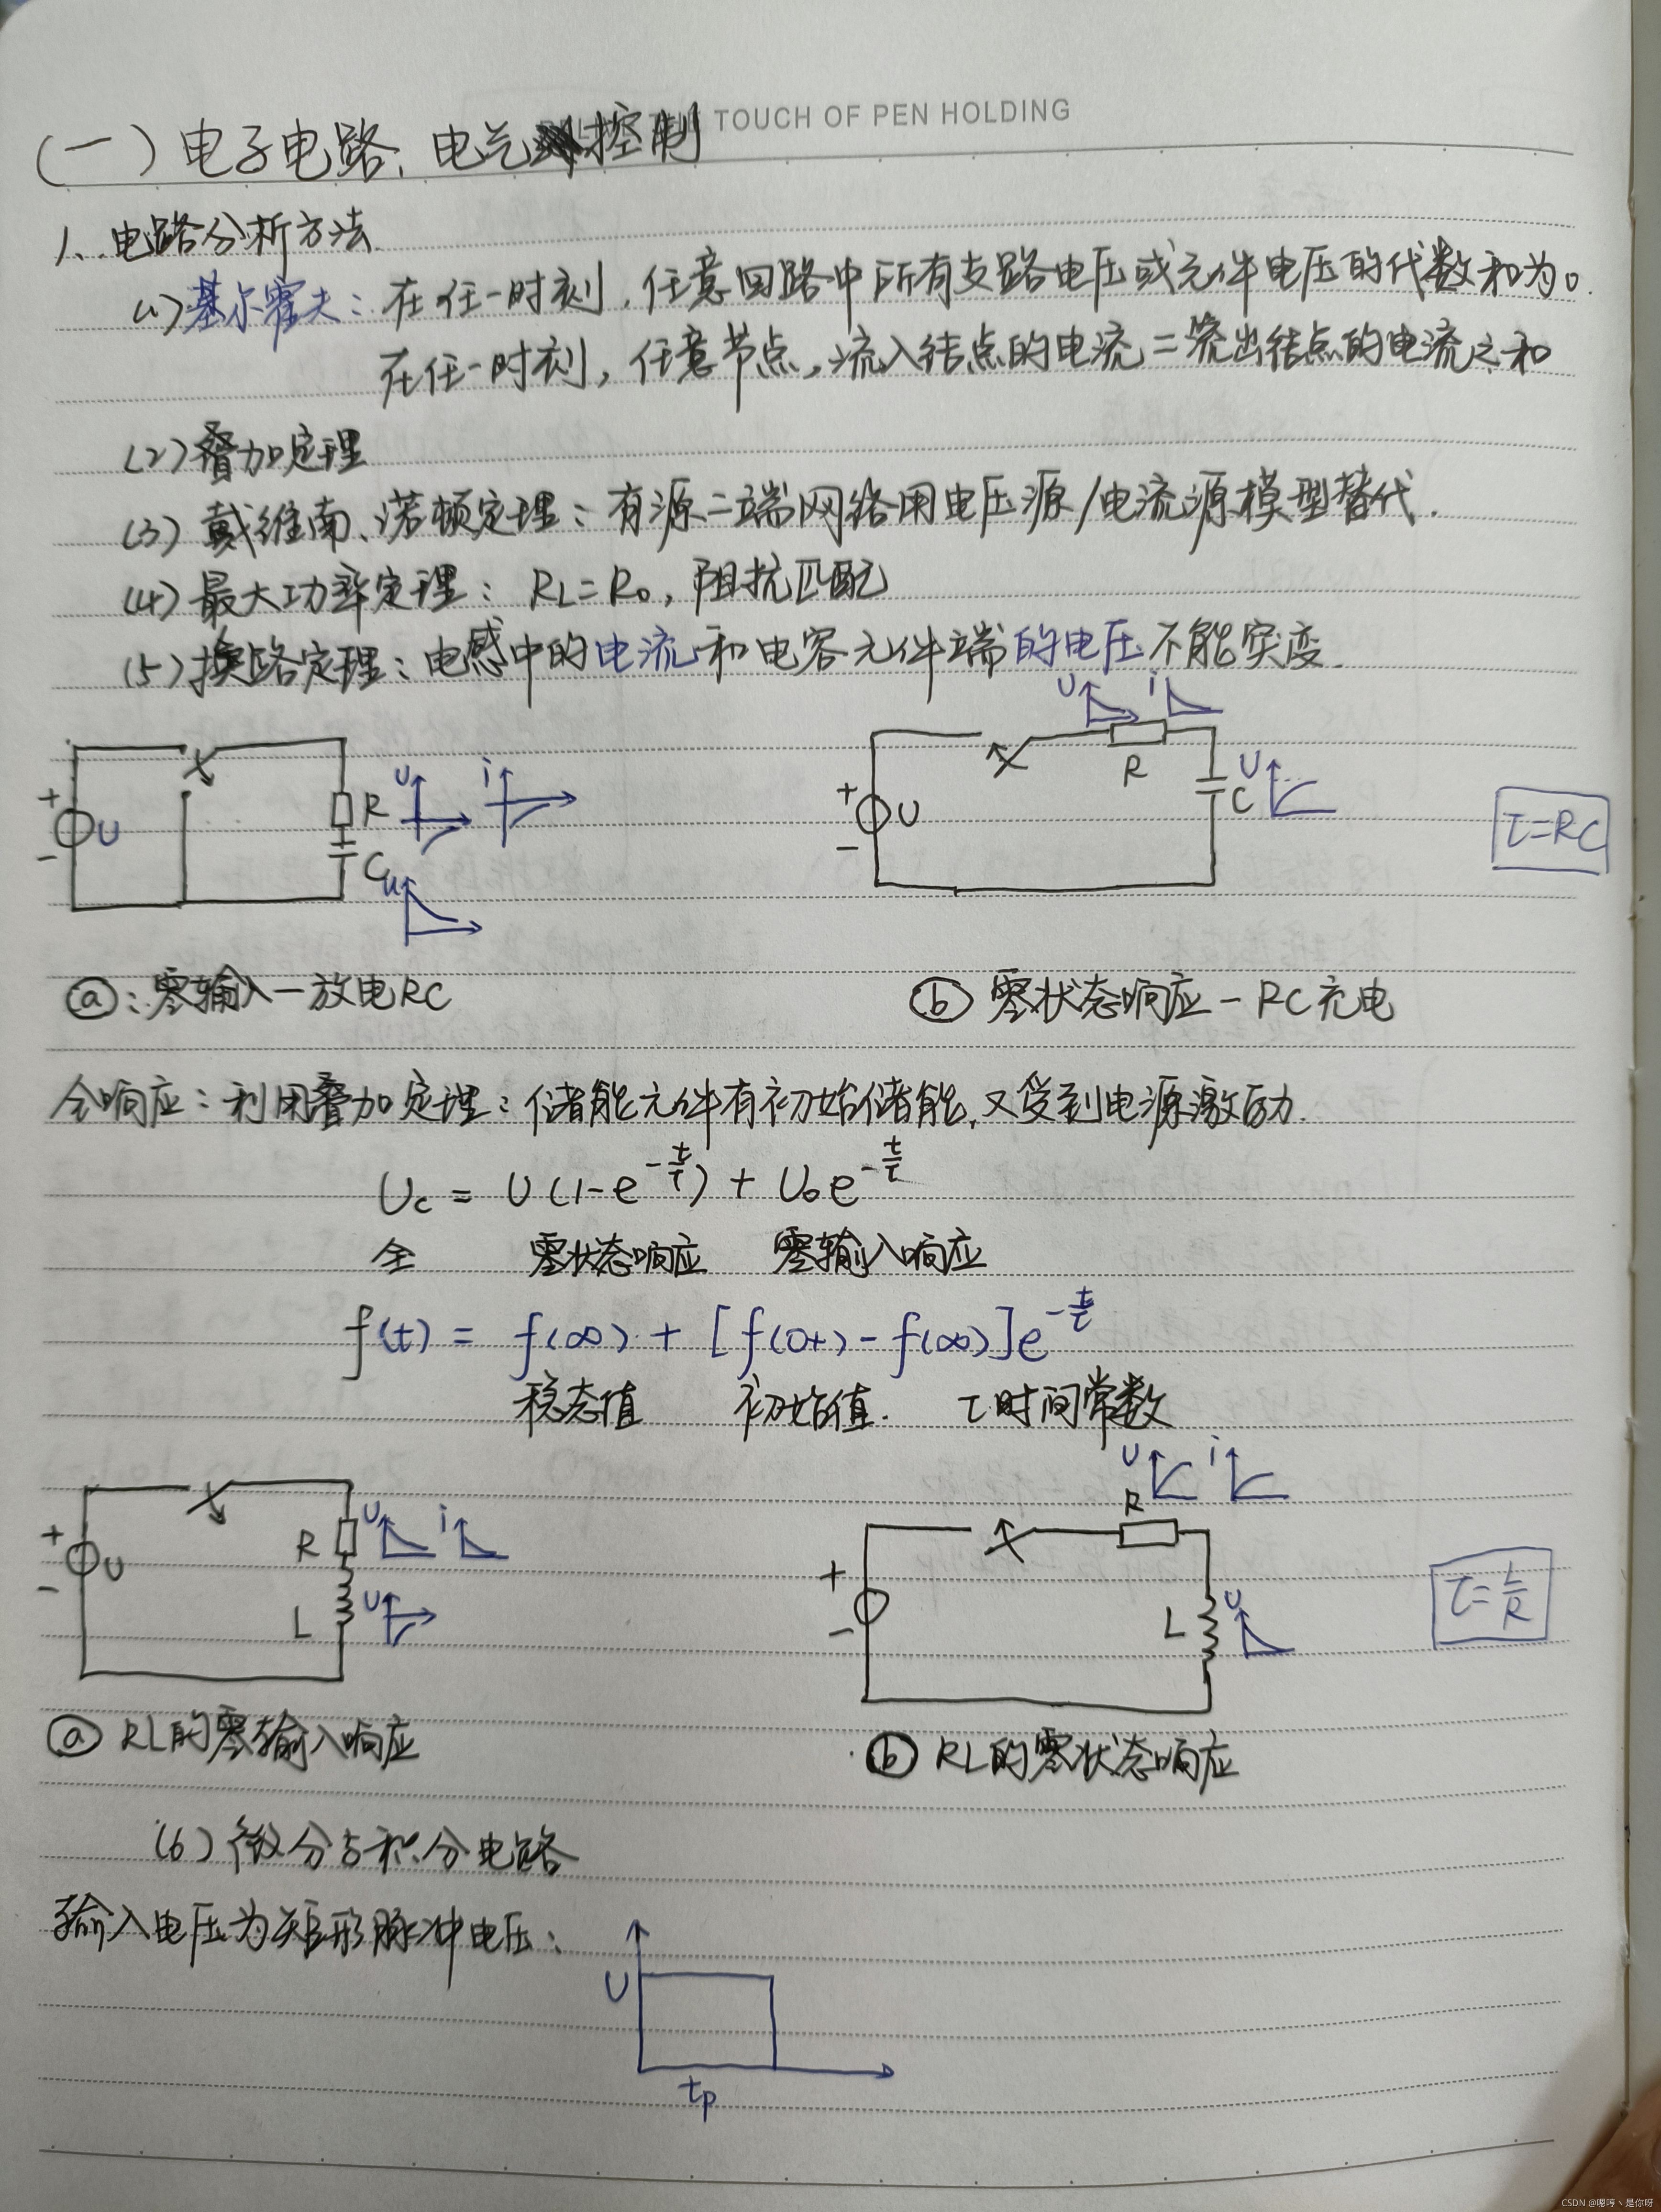 TOUCH OF PEN HOLDING
(一)电子电路、电气控制
1、电路分析方法
(1)基尔霍夫:在任一时刻,任意回路中所有支路电压或元件电压的代数和为0.
在任一时刻,任意节点,流入结点的电流=流出结点的电流之和
(2)叠加定理
(3)戴维南、诺顿定理:有源二端网络用电压源/电流源模型替代.
(4)最大功率定理:RL=R0,阻抗匹配
(5)换路定理:电感中的电流和电容元件端的电压不能突变.
U i
+ U - R U i C u
+ U - R C U
τ=RC
ⓐ:零输入-放电RC
ⓑ 零状态响应-RC充电
全响应:利用叠加定理:储能元件有初始储能,又受到电源激励.
Uc = U(1-e^{-t/τ}) + U0e^{-t/τ}
全 零状态响应 零输入响应
f(t) = f(∞) + [f(0+)-f(∞)]e^{-t/τ}
稳态值 初始值. τ时间常数
U i
+ U - R U i L U
+ - R L U
τ=L/R
ⓐ RL的零输入响应
ⓑ RL的零状态响应
(6)微分与积分电路
输入电压为矩形脉冲电压:
U
tp
CSDN @嗯哼丶是你呀